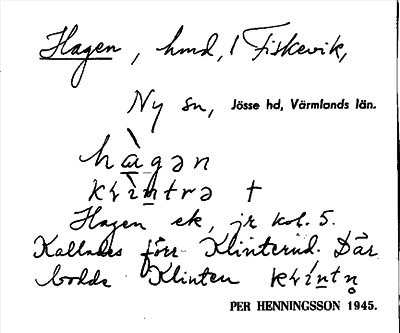 Hagen, hmd, 1 Fiskevik,
Ny sn, Jösse hd, Värmlands län.
hàgən
krìntrə †
Hagen ek, jr kol. 5.
Kallades förr Klinterud. Där
bodde Klinten kríntn̥
PER HENNINGSSON 1945.